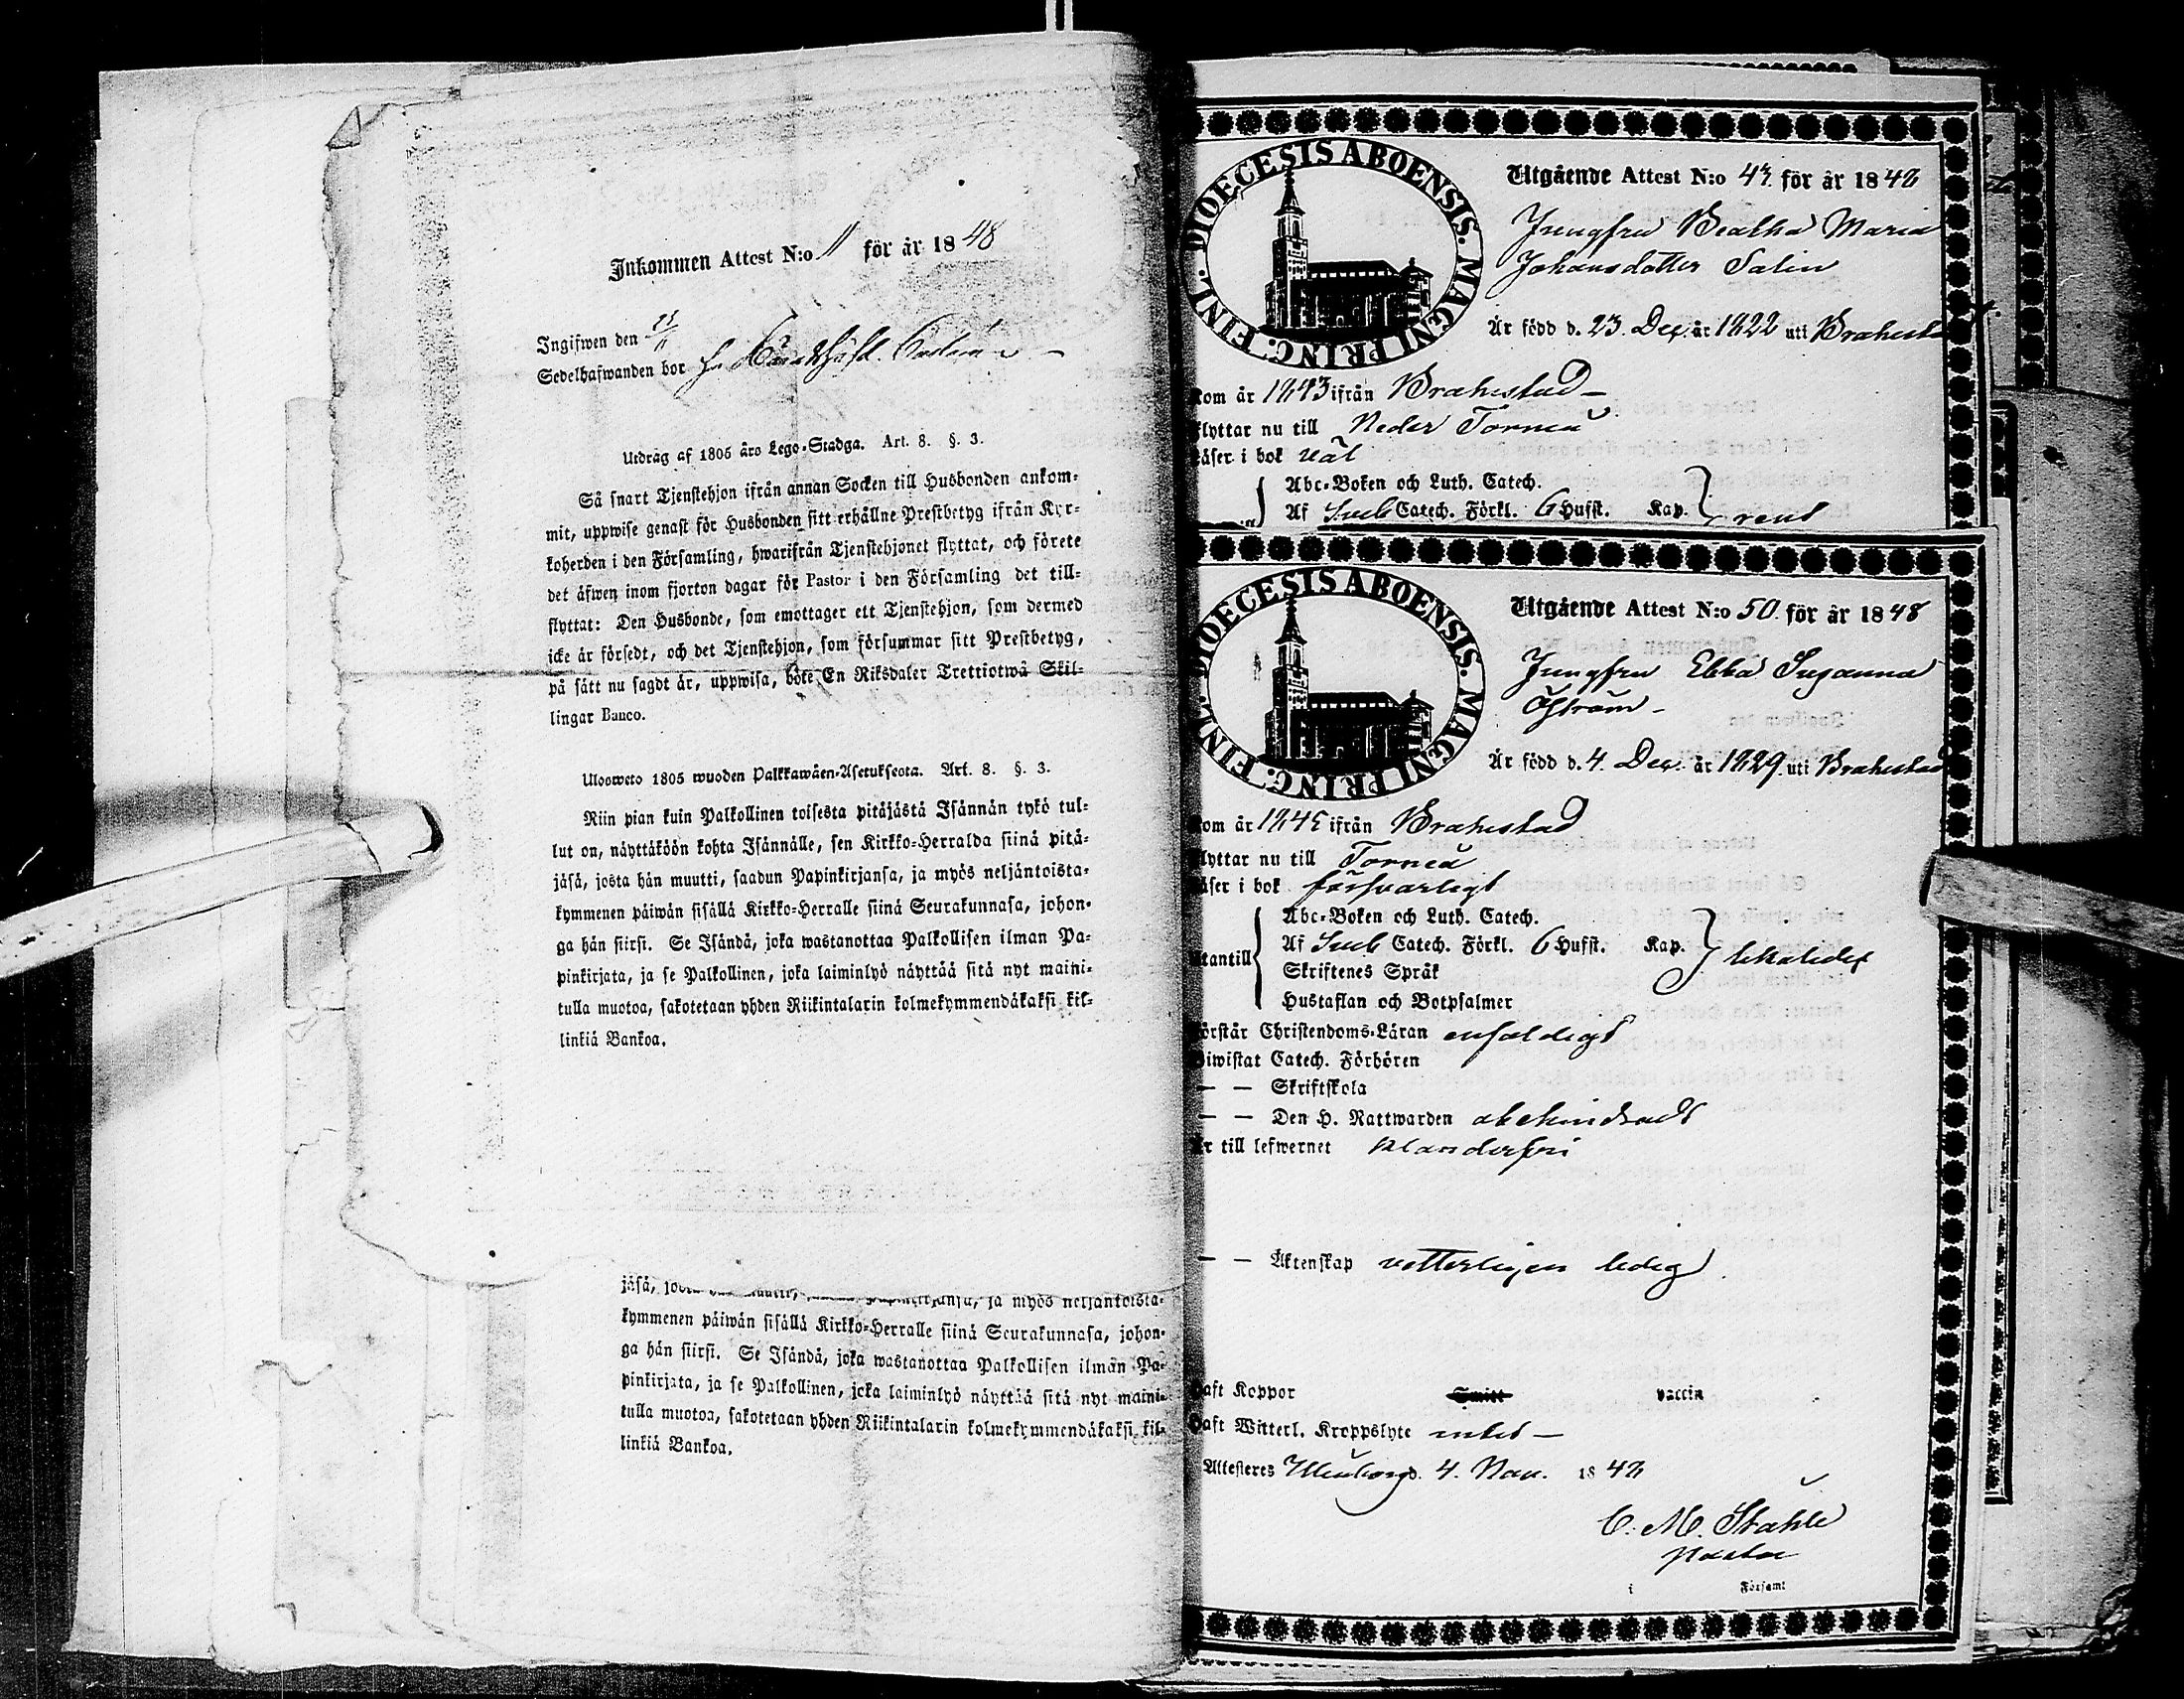 Inkommen Attest N:o 11 för år 1848
Ingifwen den 23/11
Sedelhafwanden bor
Utdrag af 1805 års Lego-Stadga. Art. 8. §. 3.
Så snart Tjenstehjon ifrån annan Socken till Husbonden ankom-
mit, uppwise genast för Husbonden sitt erhållne Prestbetyg ifrån Kyr-
koherden i den Församling, hwarifrån Tjenstehjonet flyttat, och förete
det äfwen inom fjorton dagar för Pastor i den Församling det till-
flyttat: Den Husbonde, som emottager ett Tjenstehjon, som dermed
icke är försedt, och det Tjenstehjon, som försummar sitt Prestbetyg,
på sätt nu sagdt är, uppwisa, böte En Riksdaler Trettiotwå Skil-
lingar Banco.
Uloosweto 1805 wuoden Palkkawäen-Asetuksesta. Art. 8. §. 3.
Niin pian kuin Palkollinen toisesta pitäjästä Isännän tykö tul-
lut on, näyttäköön kohta Isännälle, sen Kirkko-Herralda siinä pitä-
jäsä, josta hän muutti, saadun Papinkirjansa, ja myös neljäntoista-
kymmenen päiwän sisällä Kirkko-Herralle siinä Seurakunnasa, johon-
ga hän siirsi. Se Isändä, joka wastanottaa Palkollisen ilman Pa-
pinkirjata, ja se Palkollinen, joka laiminlyö näyttää sitä nyt maini-
tulla muotoa, sakotetaan yhden Riikintalarin kolmekymmendäkaksi kil-
linkiä Bankoa.
jäsä, ja myös neljäntoista-
kymmenen päiwän sisällä Kirkko-Herralle siinä Seurakunnasa, johon-
ga hän siirsi. Se Isändä, joka wastanottaa Palkollisen ilman Pa-
pinkirjata, ja se Palkollinen, joka laiminlyö näyttää sitä nyt maini-
tulla muotoa, sakotetaan yhden Riikintalarin kolmekymmendäkaksi kil-
linkiä Bankoa.
DIOECESIS ABOENSIS. MAGNI PRINC. FINL.
Utgående Attest N:o 47. för år 1848
Jungfru Beatha Maria
Johansdotter Salin
Är född d. 23. Dec. år 1822 uti Brahesta
kom år 1843 ifrån Brahestad
flyttar nu till Neder Torneå
läser i bok väl
Abc-Boken och Luth. Catech.
Af Sveb Catech. Förkl. 6 Hufst. Kap. rent
DIOECESIS ABOENSIS. MAGNI PRINC. FINL.
Utgående Attest N:o 50. för år 1848
Jungfru Ebba Susanna
Öström
Är född d. 4. Dec. år 1829. uti Brahestad
kom år 1845 ifrån Brahestad
flyttar nu till Torneå
läser i bok försvarligt
utantill
Abc-Boken och Luth. Catech.
Af Sveb Catech. Förkl. 6 Hufst. Kap. likaledes
Skriftenes Språk
Hustaflan och Botpsalmer
Förstår Christendoms-Läran enfaldigt
Biwistat Catech. Förhören
— — Skriftskola
— — Den H. Nattwarden obehindradt
Är till lefwernet klanderfri
— — Äktenskap vetterligen ledig
Haft Koppor Smitt vaccin
Haft Witterl. Kroppslyte intet
Attesteres Uleåborg d. 4. Nov. 1848
C. M. Ståhle
Pastor
i Församl